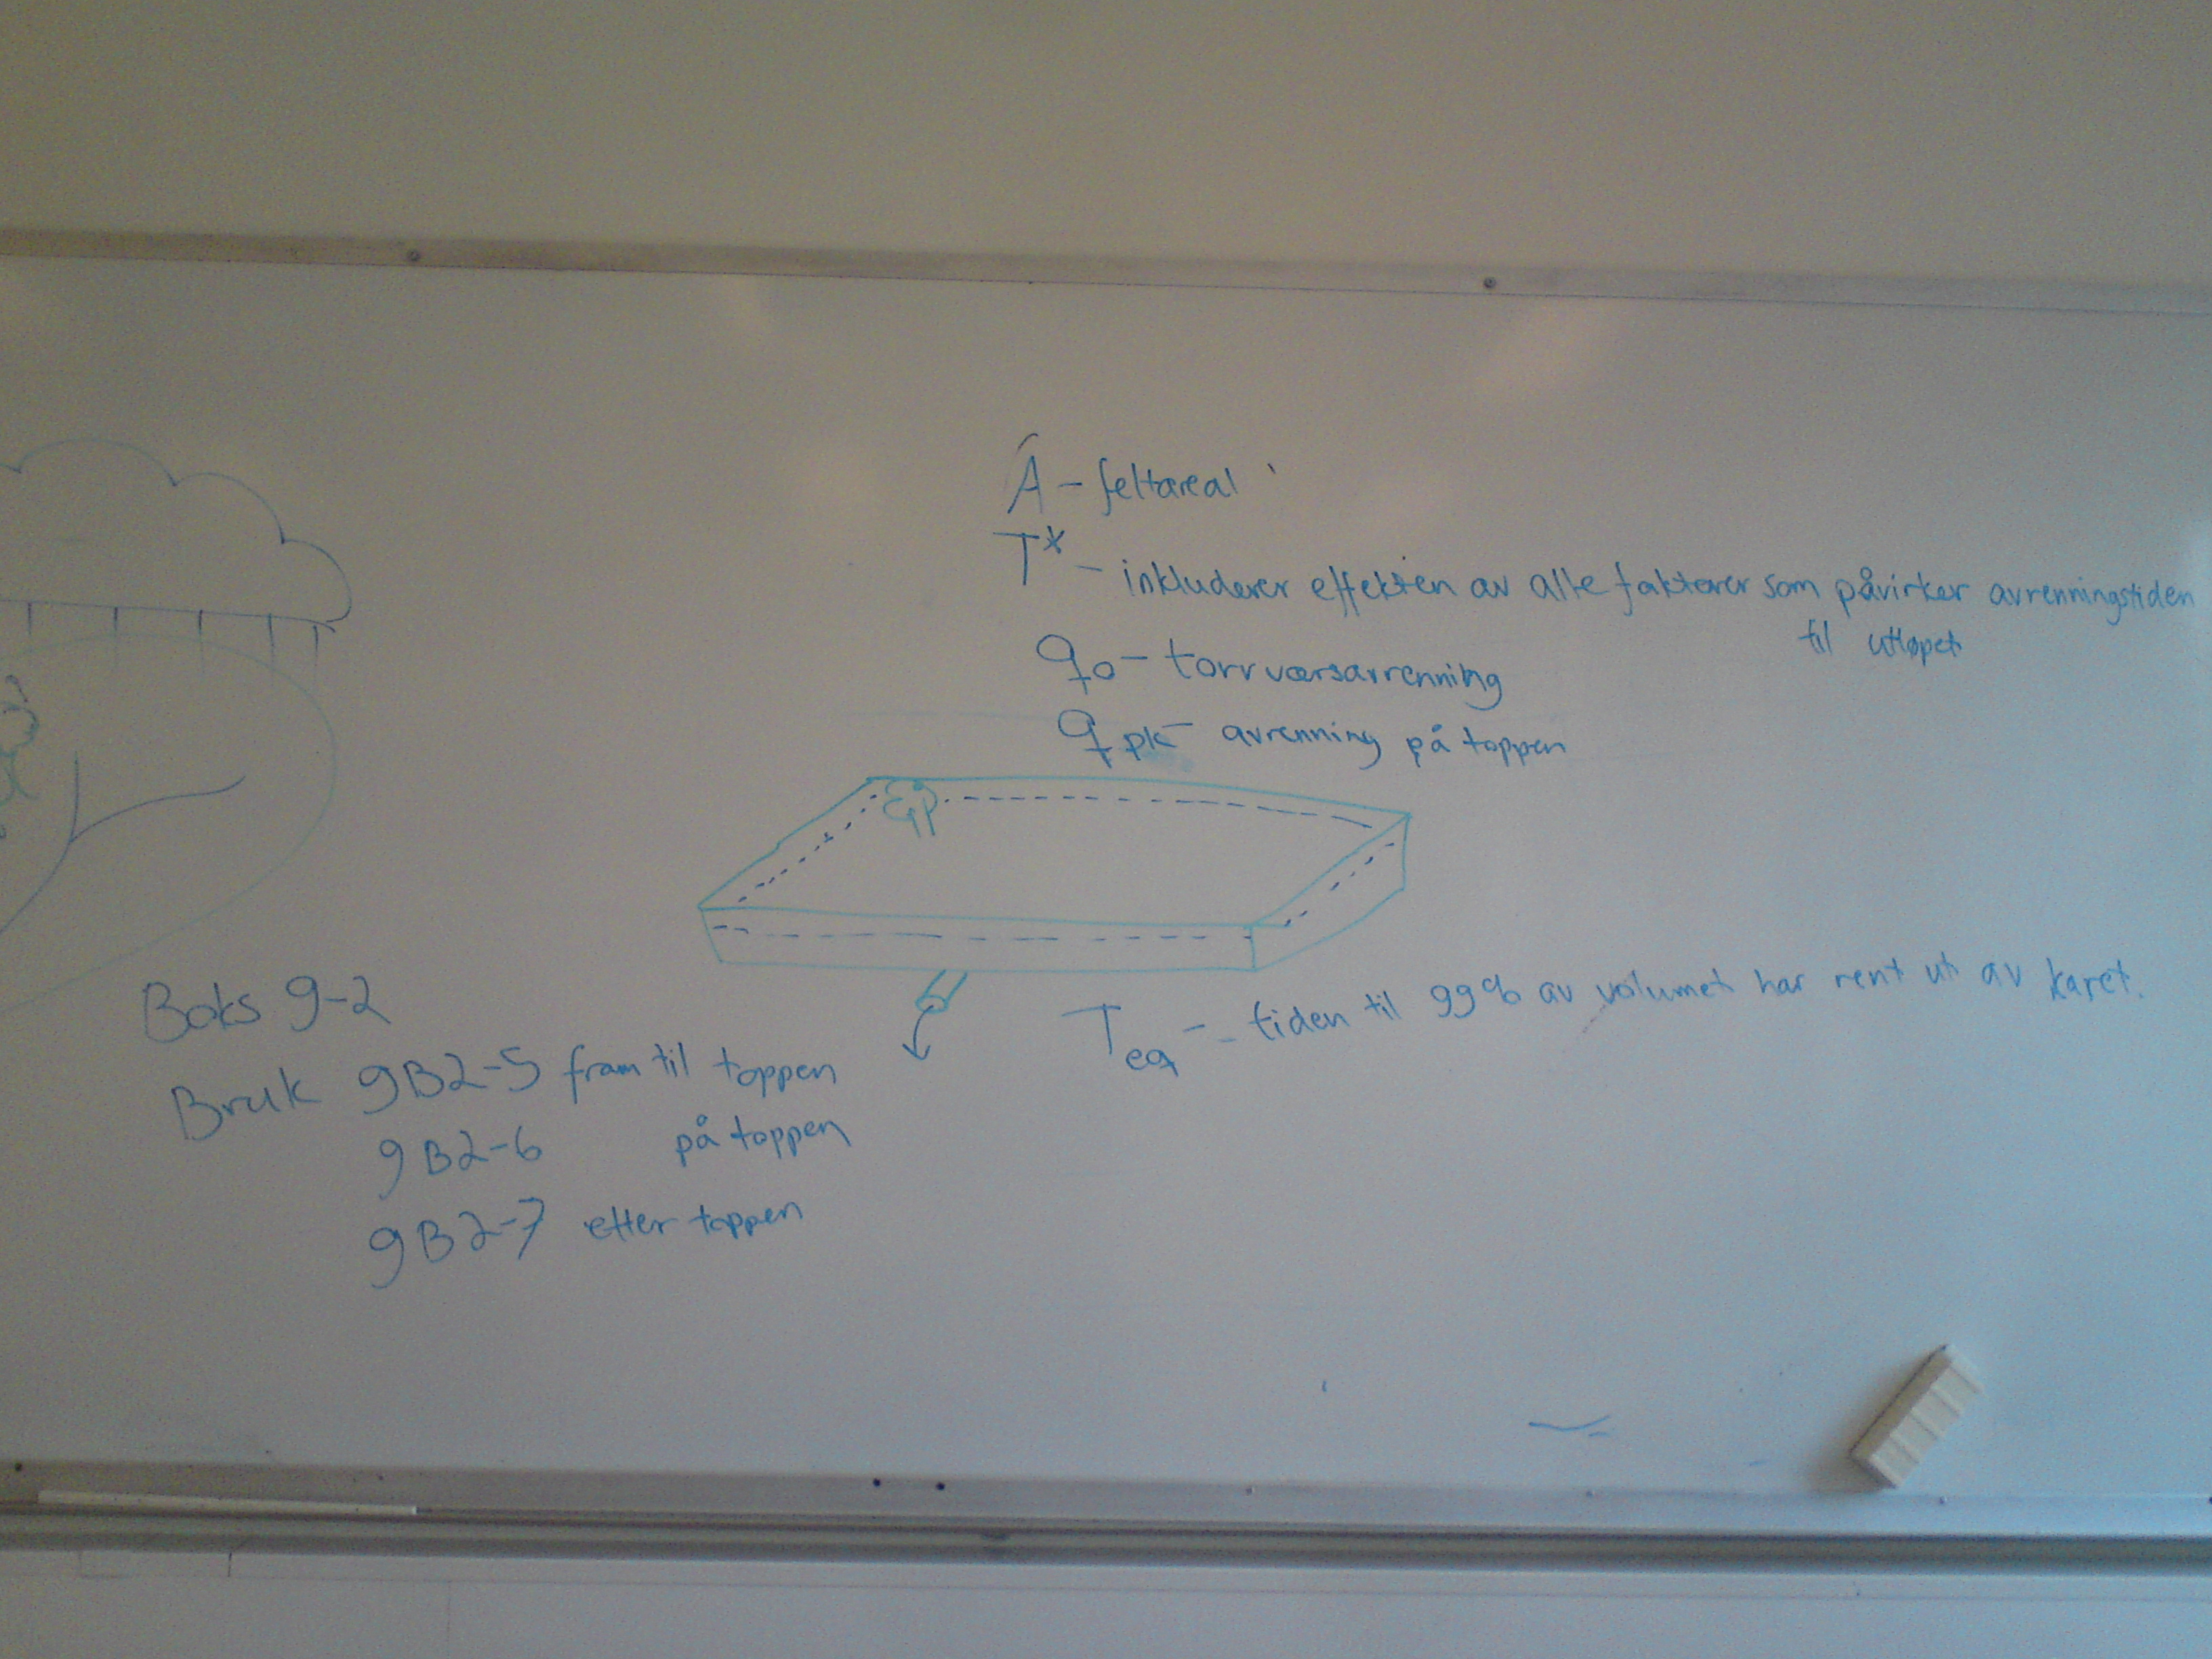 A - feltareal
T* - inkluderer effekten av alle faktorer som påvirker avrenningstiden
til utløpet
q0 - tørrværsavrenning
qpk - avrenning på toppen
Teq - tiden til 99% av volumet har rent ut av karet.
Boks 9-2
Bruk 9B2-5 fram til toppen
9B2-6 på toppen
9B2-7 etter toppen